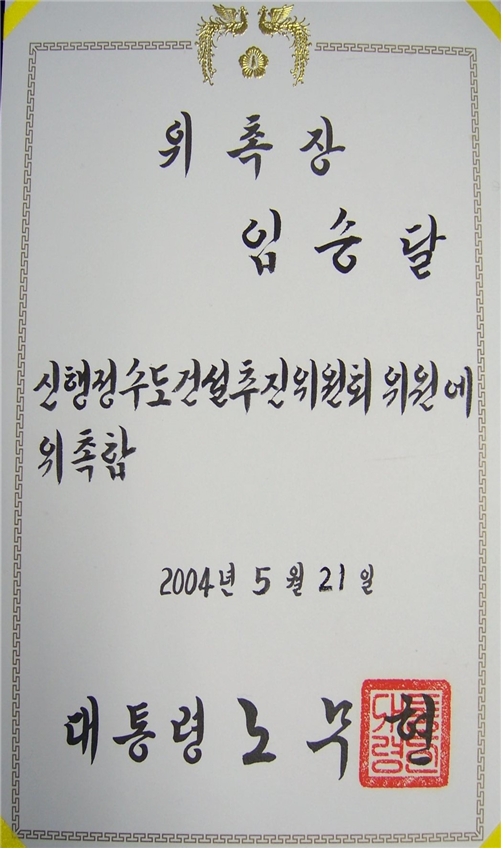 위촉장
임승달
신행정수도건설추진위원회 위원에
위촉함
2004년 5월 21일
대통령 노무현